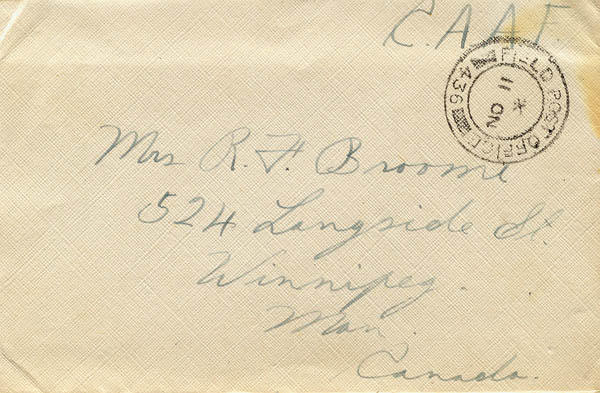 C.A.A.F.
FIELD POST OFFICE
436
11
NO
Mrs R. F. Broome
524 Langside St.
Winnipeg.
Man.
Canada.